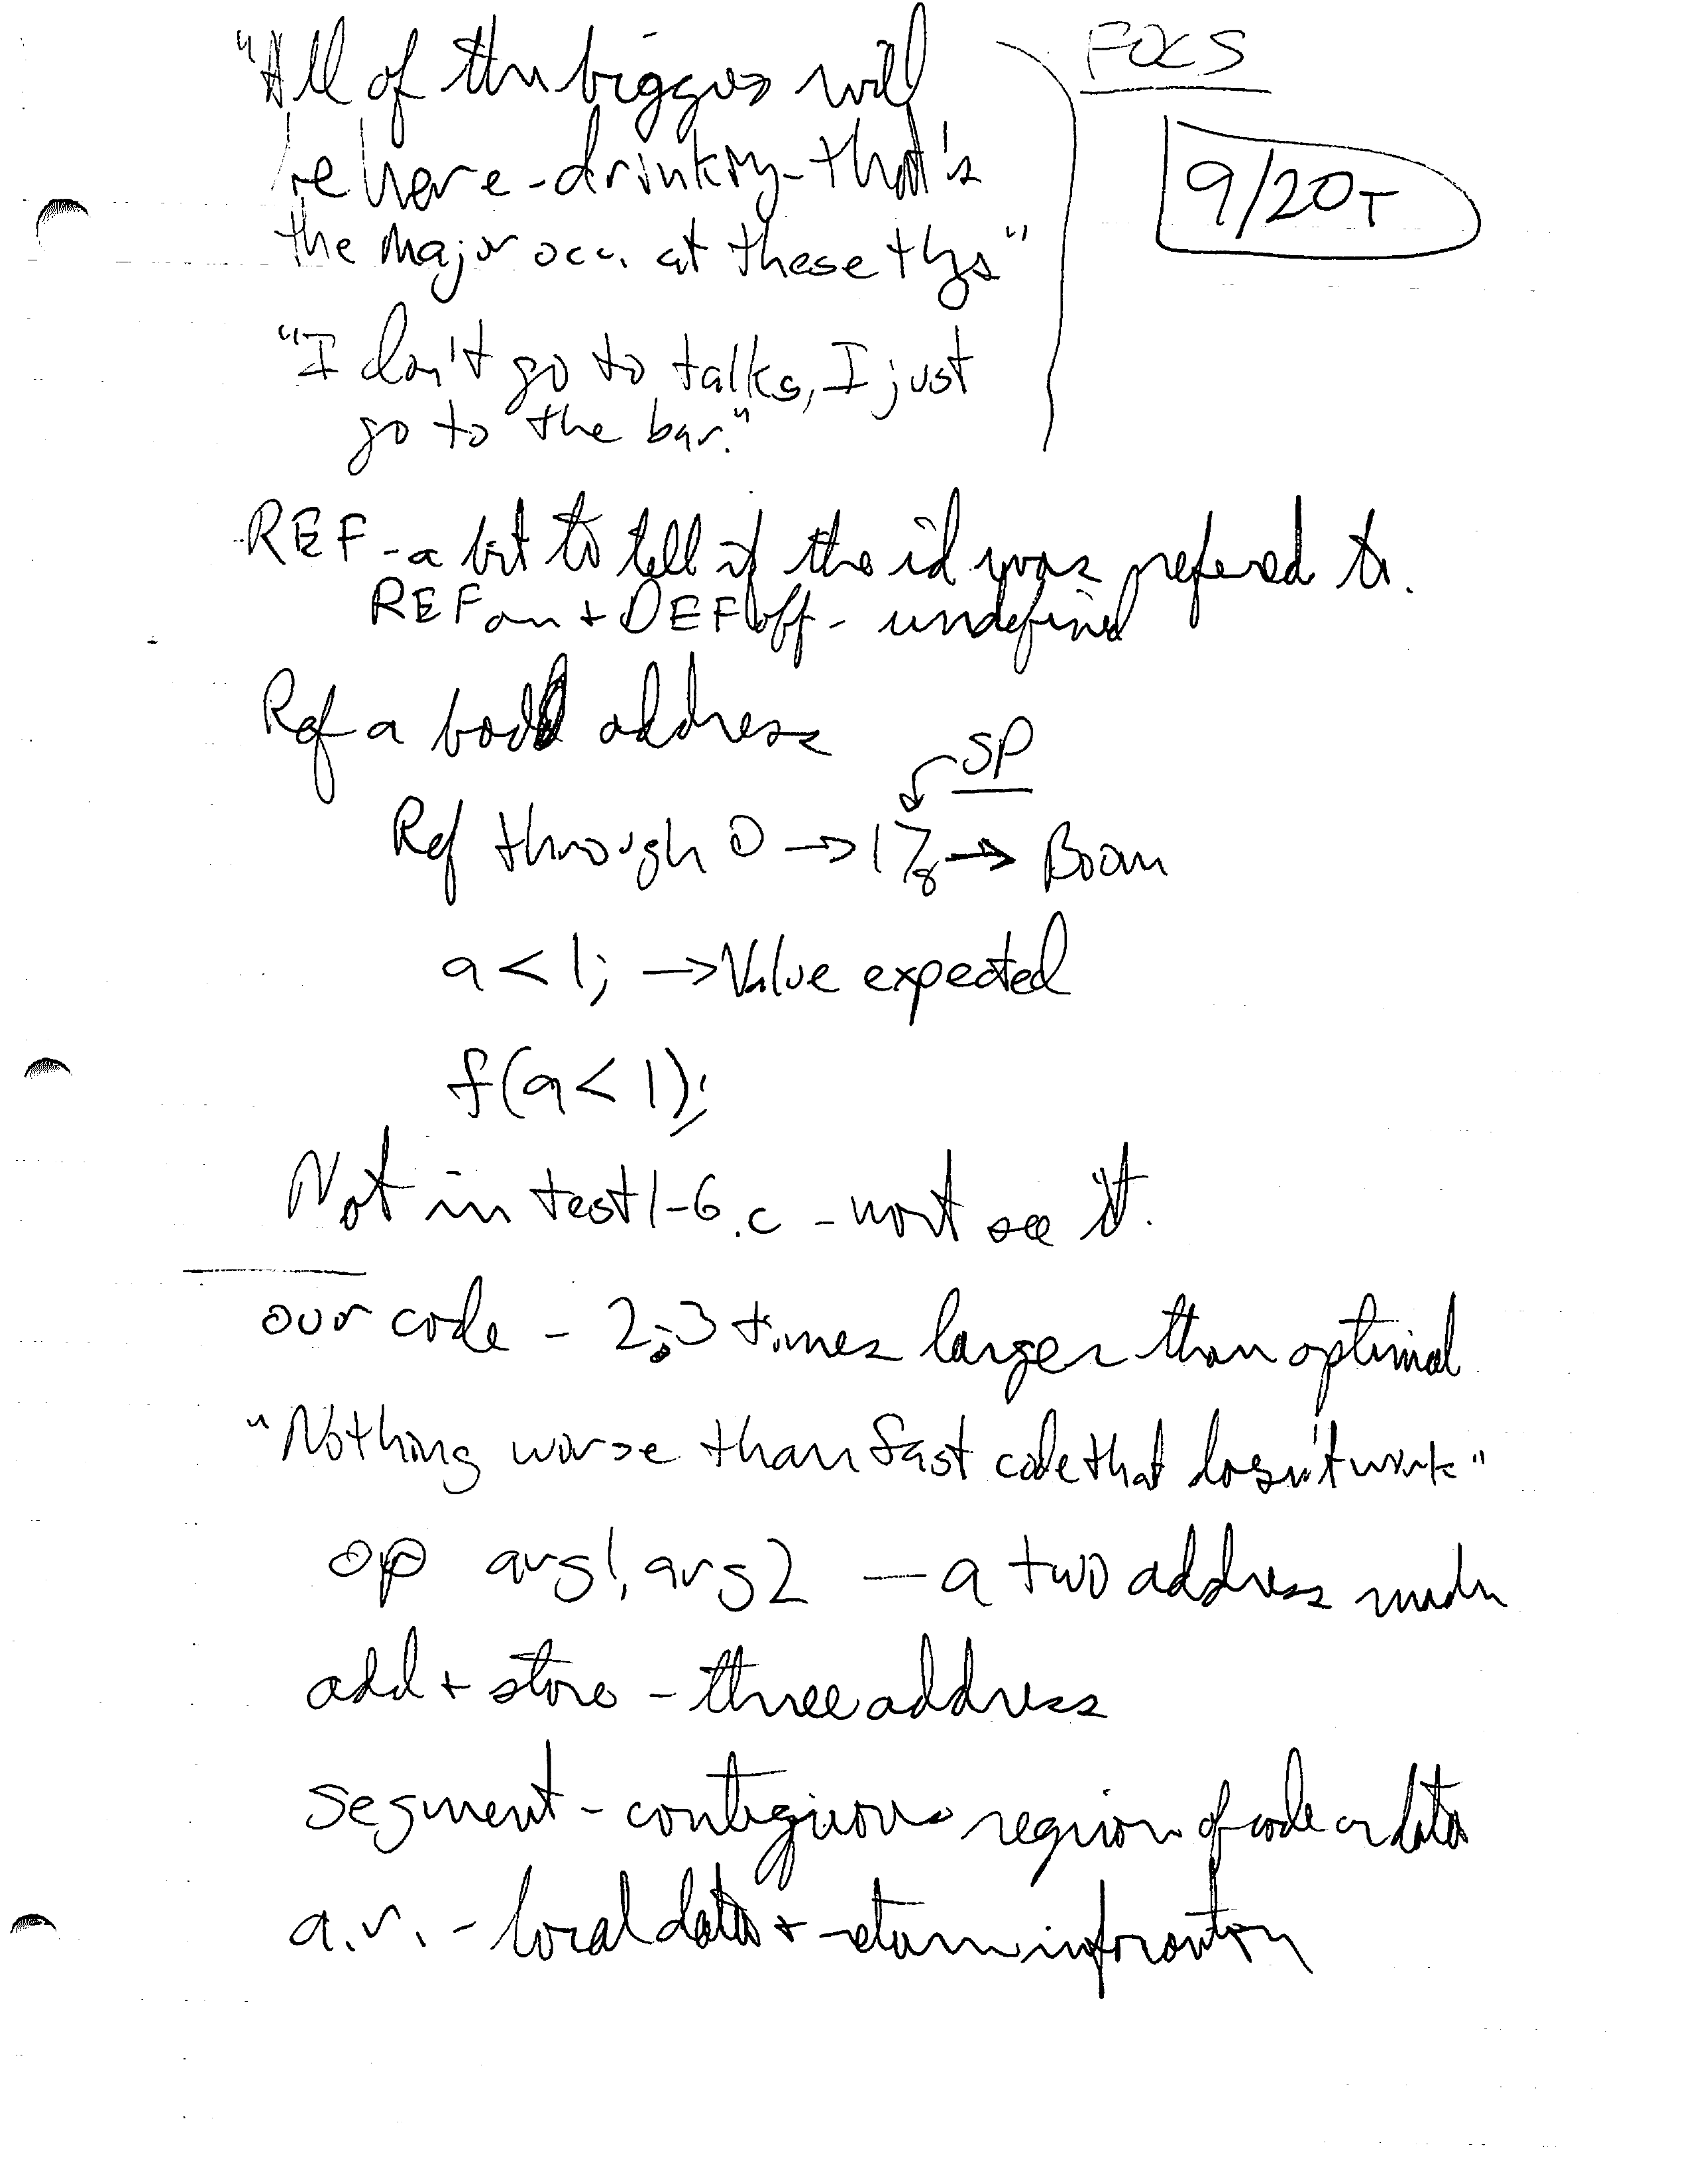 FOCS
9/20 T
"All of the biggies will
be here - drinking - that's
the major occ. at these thgs"
"I don't go to talks, I just
go to the bar."
REF - a bit to tell if the id was refered to.
REF on + DEF off - undefined
Ref a bad address
SP
Ref through 0 → 17₈ → Boom
a < 1; → Value expected
f(a < 1);
Not in test1-6.c - wont see it.
our code - 2-3 times larger than optimal
"Nothing worse than fast code that doesn't work"
op arg1, arg2 — a two address
add + store - three address
segment - contiguous region of code or data
a.r. - local data + return information